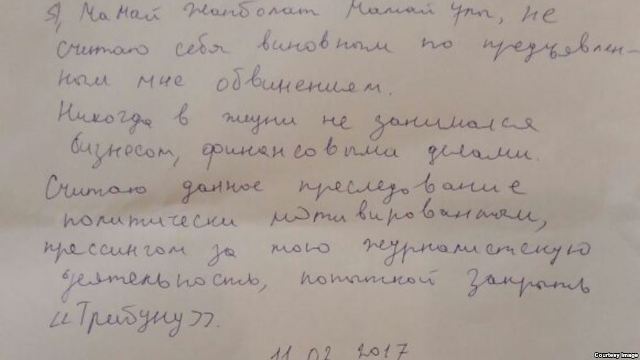 Я, Мамай Жанболат Мамай улы, не
считаю себя виновным по предъявлен-
ным мне обвинением.
Никогда в жизни не занимался
бизнесом, финансовыма делами.
Считаю данное преследование
политически мотивированным,
прессингом за мою журналистскую
деятельность, попыткой закрыть
«Трибуну».
11.02.2017
Courtesy Image